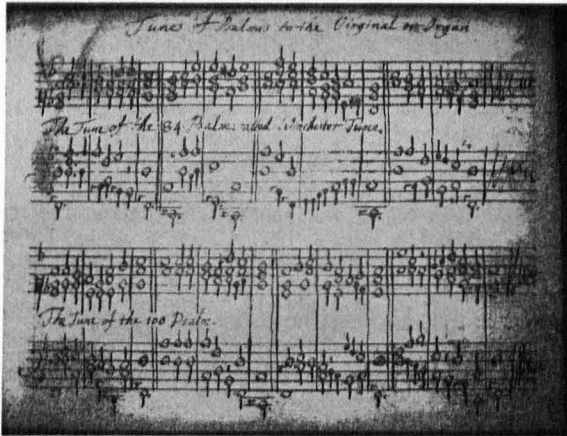 Tunes of Psalms to the Virginal or Organ
The Tune of the 84 Psalm called Winchester Tune.
The Tune of the 100 Psalm.